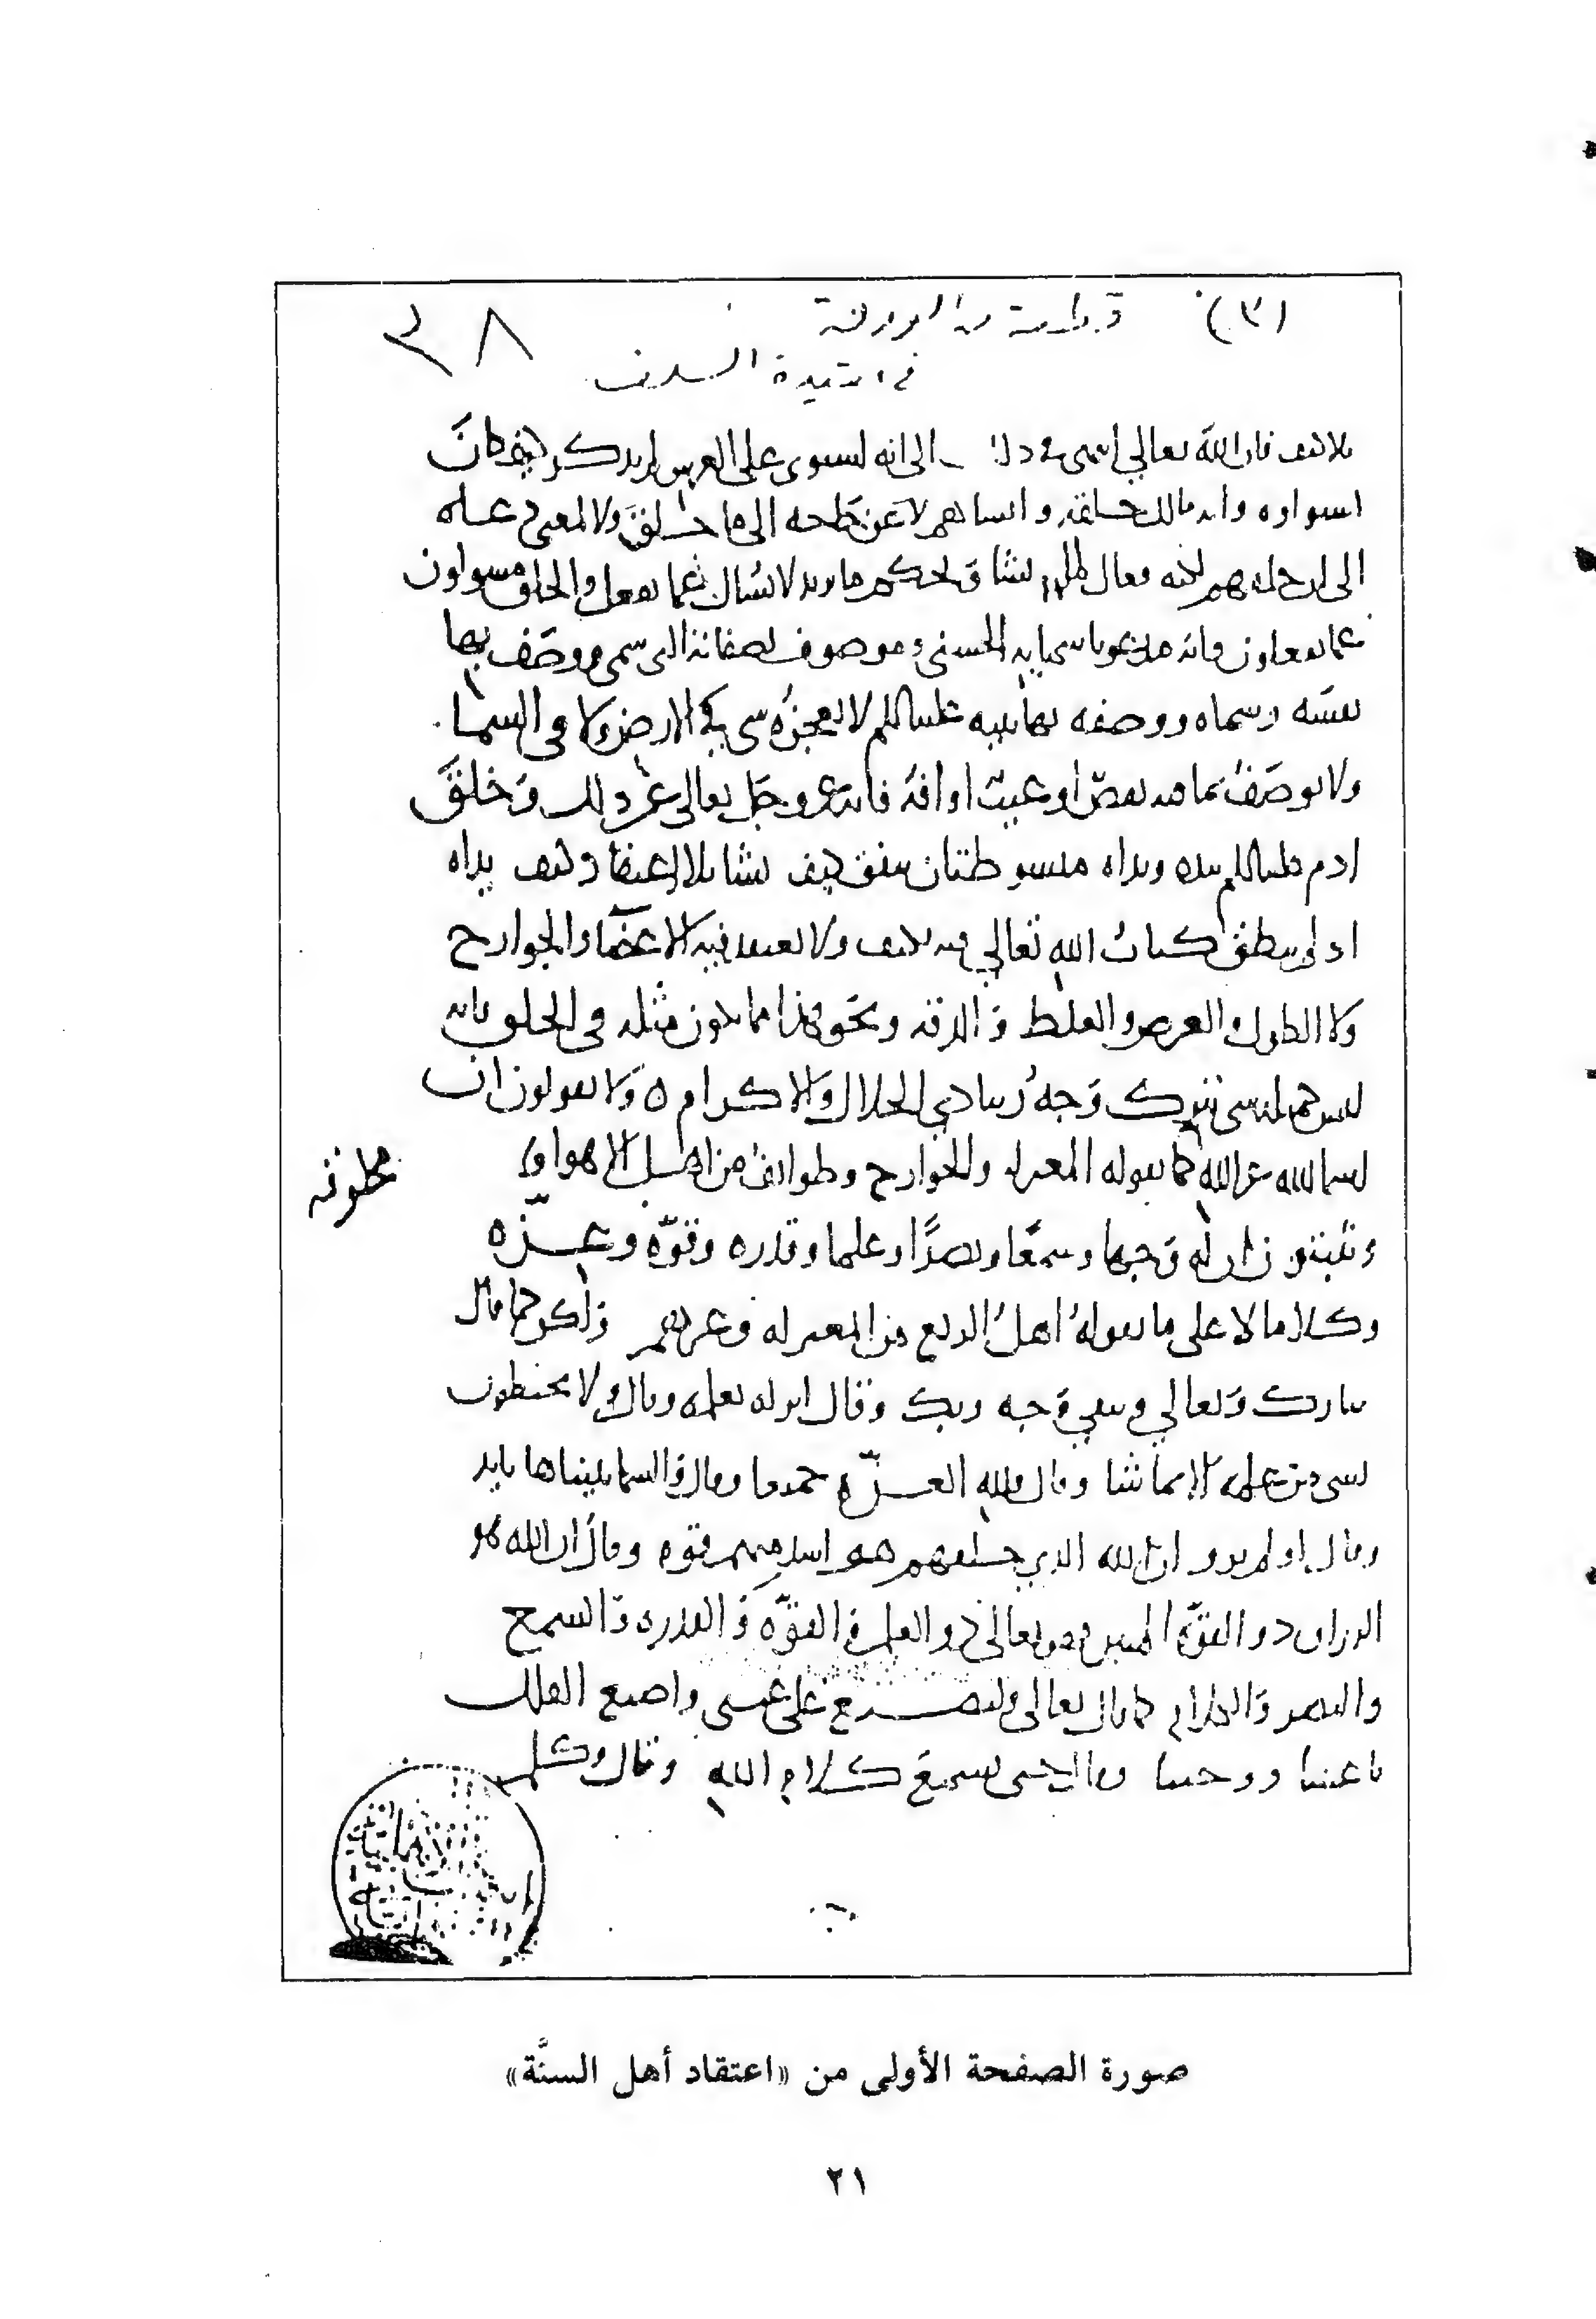 (٣) قطعة من
في عقيدة السلف
٣٨
بلا كيف فان الله تعالى انتهى في ذلك الى انه استوى على العرش ولم يذكر كيف كان
استواوه وانه مالك خلقه وانشاهم لا عن حاجه الى ما خلق ولا لمعنى دعاه
الى ان خلقهم لكنه فعال لما يشا ويحكم ما يريد لا يسال عما يفعل والخلق مسولون
عما يفعلون وانه مدعو باسمايه الحسنى وموصوف بصفاته التي سمى ووصف بها
نفسه وسماه ووصفه بها نبيه عليه السلم لا يعجزه شي في الارض ولا في السما
ولا يوصف بما فيه نقص او عيب او افة فانه عز وجل تعالى عن ذلك وخلق
ادم عليه السلم بيده ويداه مبسوطتان ينفق كيف يشا بلا اعتقاد كيف يداه
اذ لم ينطق كتاب الله تعالى فيه بكيف ولا يعتقد فيه الاعضا والجوارح
ولا الطول والعرض والغلظ والدقه ونحو هذا مما يكون مثله في الخلق فانه
ليس كمثله شي تبرك وجه ربنا ذي الجلال والاكرام ٥ ولا يقولون ان
اسما الله غير الله كما يقوله المعتزله والخوارج وطوايف من اهل الاهوا
مخلوقه
ويثبتون ان له وجها وسمعا وبصرا وعلما وقدره وقوّه وعزّه
وكلاما لا على ما يقوله اهل الزيغ من المعتزله وغيرهم ولكن كما قال
تبارك وتعالى ويبقى وجه ربك وقال انزله بعلمه وقال ولا يحيطون
بشي من علمه الا بما شا وقال فلله العزّه جميعا وقال والسما بنيناها بايد
وقال اولم يروا ان الله الذي خلقهم هو اشد منهم قوه وقال ان الله هو
الرزاق ذو القوّه المتين فهو تعالى ذو العلم والقوّه والقدره والسمع
والبصر والكلام كما قال تعالى ولتصنع على عيني واصنع الفلك
باعيننا ووحينا وقال حتى يسمع كلام الله وقال وكلم
صورة الصفحة الأولى من «اعتقاد أهل السنَّة»
٢١